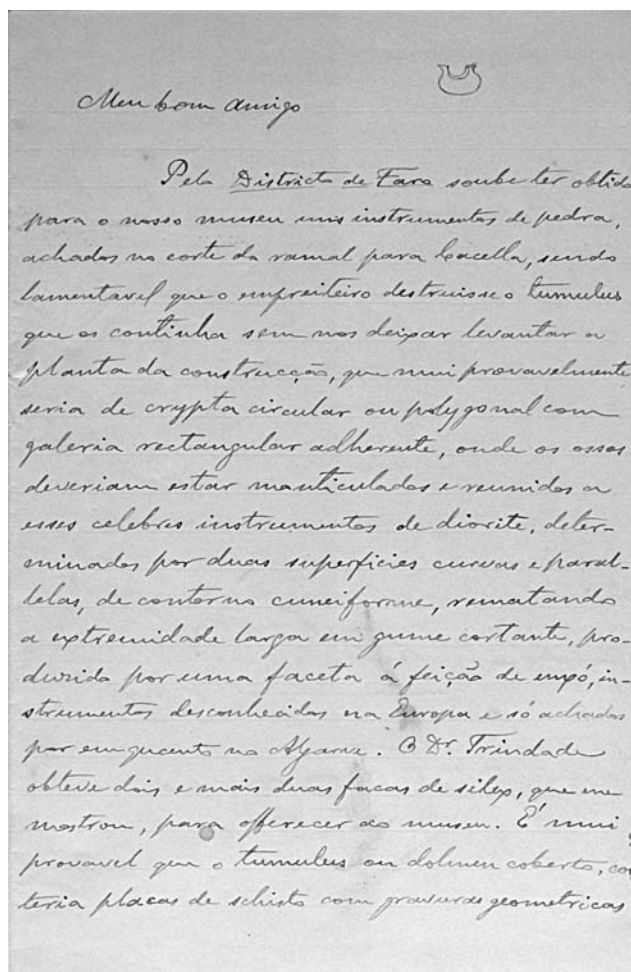 Meu bom amigo
Pelo Districto de Faro soube ter obtido
para o nosso museu uns instrumentos de pedra,
achados no corte do ramal para Cacella, sendo
lamentavel que o empreiteiro destruisse o tumulus
que os continha sem nos deixar levantar a
planta da construcção, que mui provavelmente
seria de crypta circular ou polygonal com
galeria rectangular adherente, onde os ossos
deveriam estar e reunidos a
esses celebres instrumentos de diorite, deter-
minados por duas superficies curvas e paral-
lelas, de contorno cuneiforme, rematando
a extremidade larga em gume cortante, pro-
duzido por uma faceta á feição de enxó, in-
strumentos desconhecidos na Europa e só achados
por emquanto no Algarve. O Dr. Trindade
obteve dois e mais duas facas de silex, que me
mostrou, para offerecer ao museu. É mui
provavel que o tumulus ou dolmen coberto, con
teria placas de schisto com gravuras geometricas